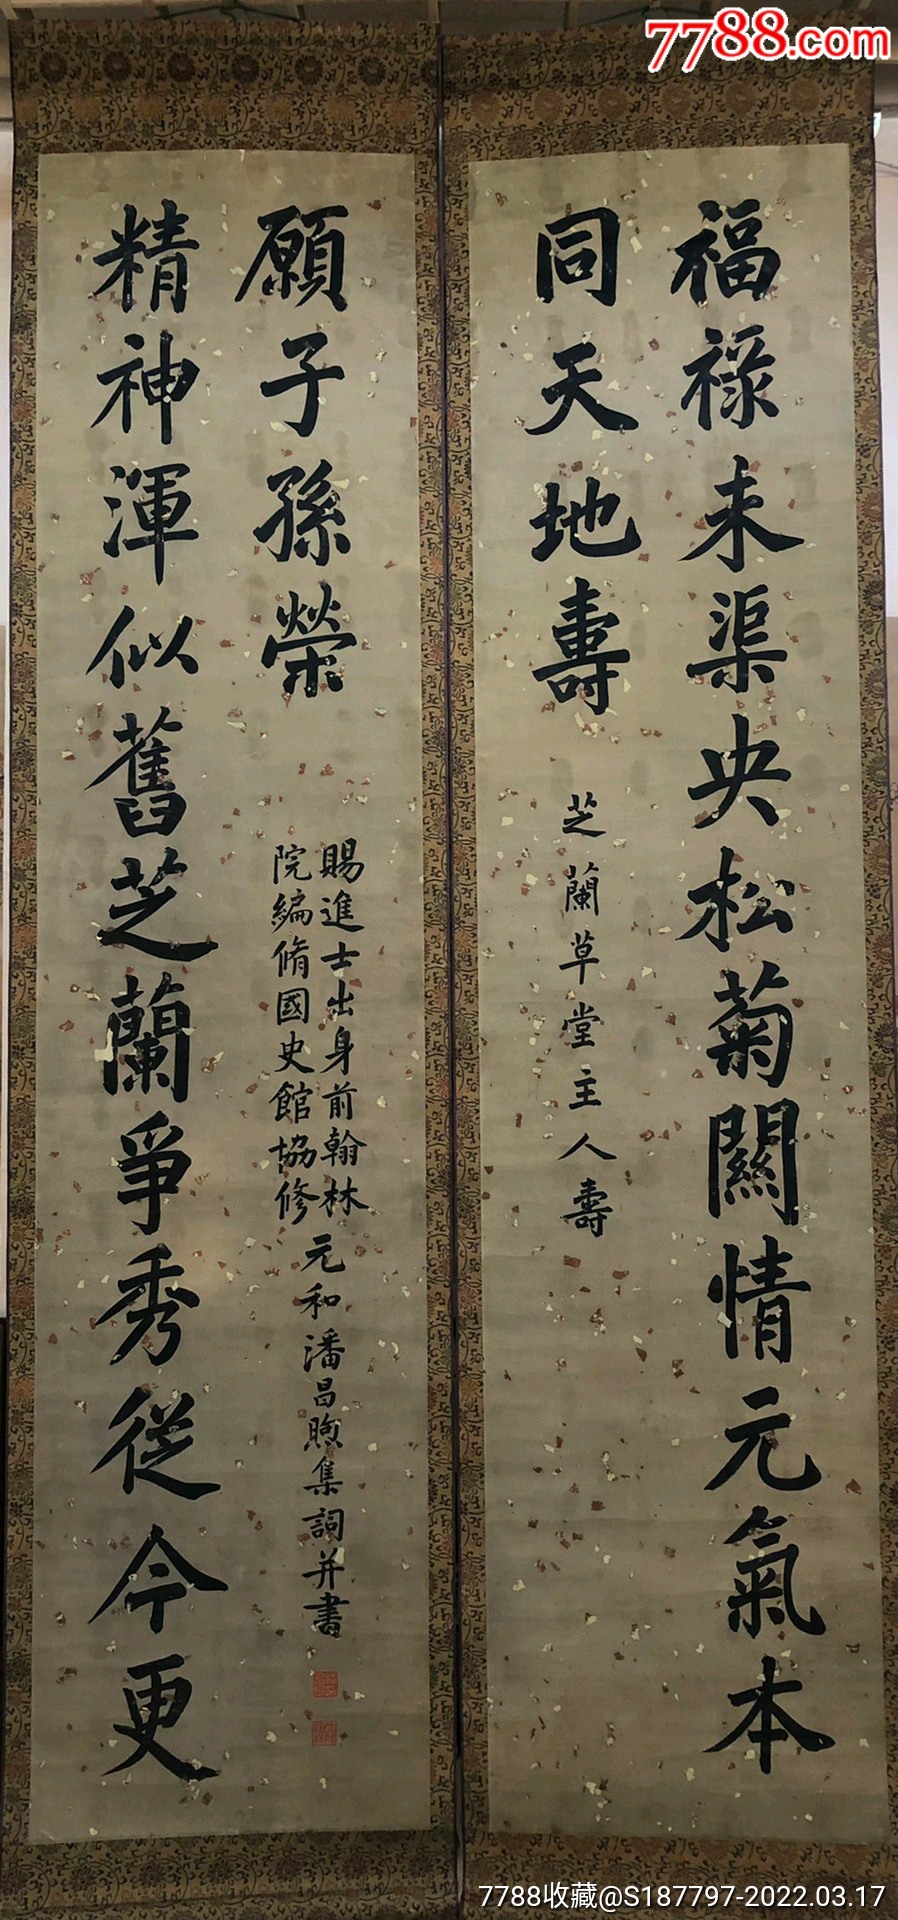 7788.com
福祿未渠央松菊關情元氣本
同天地壽
芝蘭草堂主人壽
精神渾似舊芝蘭爭秀從今更
願子孫榮
賜進士出身前翰林
院編脩國史館協修
元和潘昌煦集詞并書
7788收藏@S187797-2022.03.17